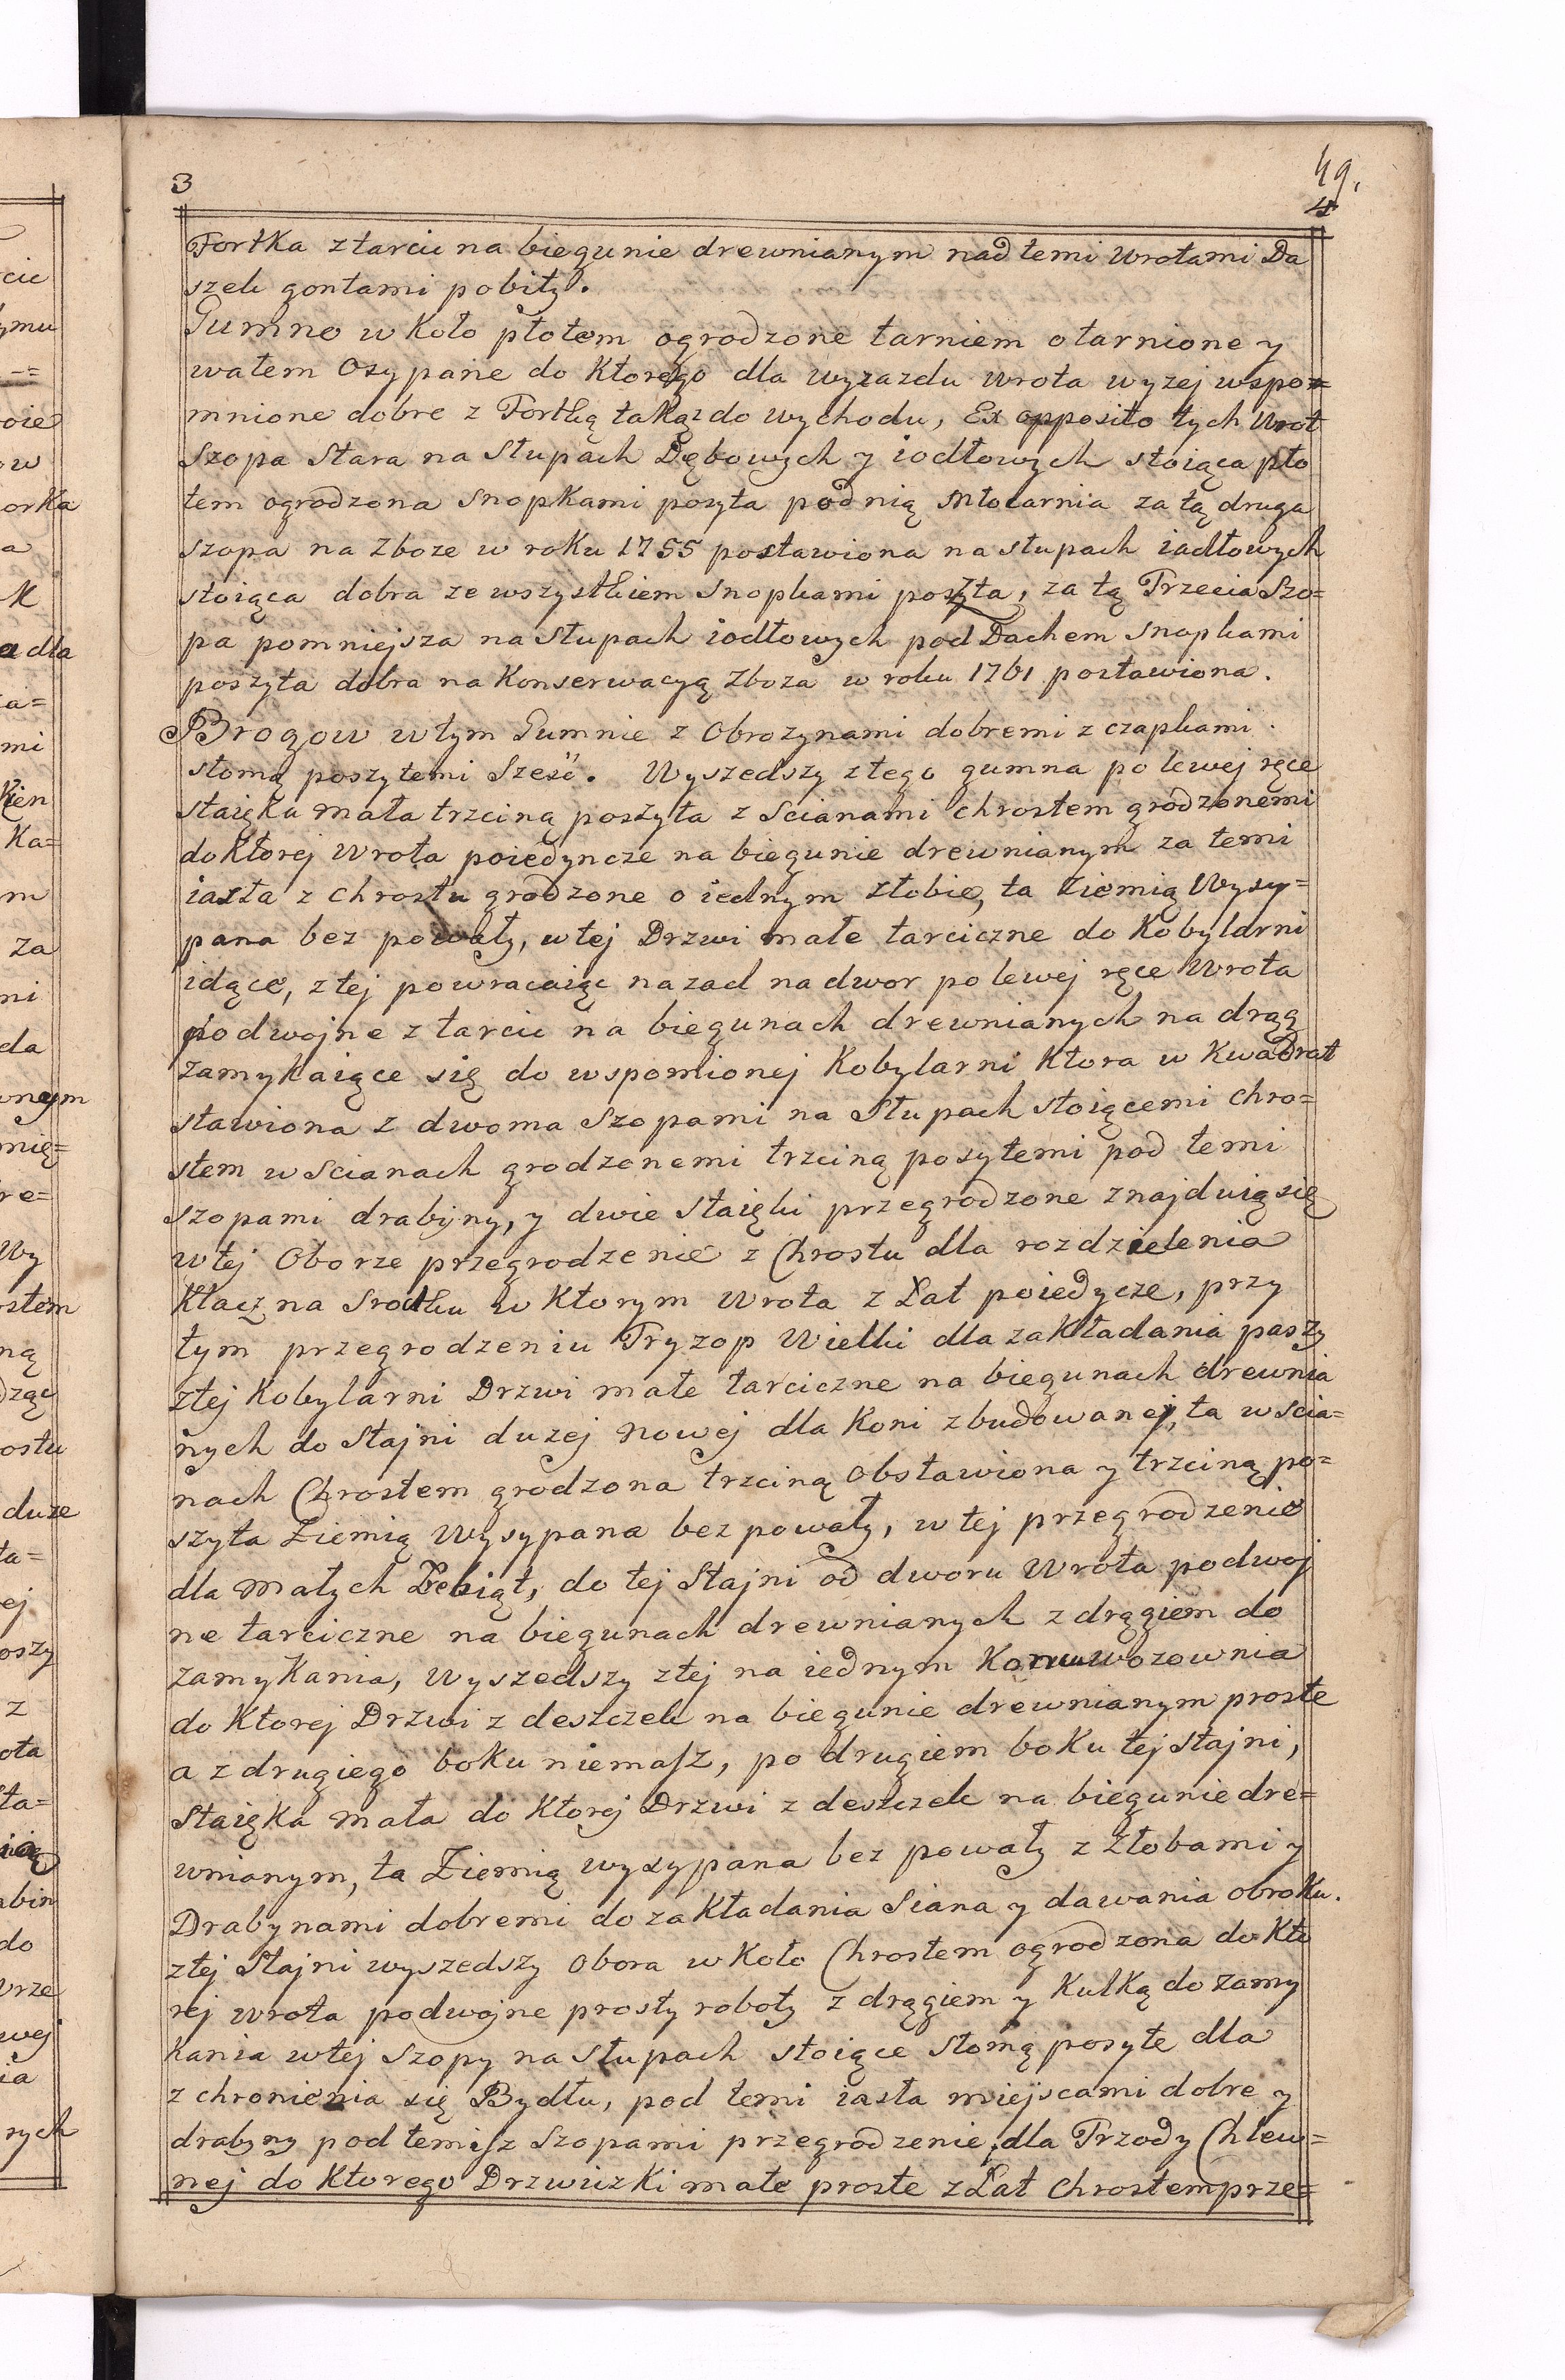 3
49.
4
Fortka z tarcic na biegunie drewnianym nad temi wrotami Da
szek gontami pobity.
Gumno w koło płotem ogrodzone tarniem otarnione y
wałem Osypane do ktorego dla wyiazdu wrota wyzej wspo=
mnione dobre z Fortką taką z do wychodu, Ex opposito tych Wrot
Szopa Stara na Słupach Dębowych y iodłowych stoiąca pło
tem ogrodzona snopkami poszyta pod nią Młocarnia za tą druga
szopa na Zboze w roku 1755 postawiona na słupach iadłowych
stoiąca dobra ze wszystkiem snopkami poszyta, za tą Trzecia Szo=
pa pomniejsza na słupach iodłowych pod Dachem snopkami
poszyta dobra na Konserwacyą Zboza w roku 1761 postawiona.
Brogow w tym Gumnie z Obrozynami dobremi z czapkami
słomą poszytemi Sześć. Wyszedszy z tego gumna po lewej ręce
staięka mała trzciną poszyta z Scianami chrostem grodzonemi
do ktorej Wrota poiedyncze na biegunie drewnianym za temi
iasła z chrostu grodzone o iednym złobie, ta Ziemią Wysy=
pana bez powały, w tej Drzwi małe tarciczne do Kobylarni
idące, z tej powracaiąc nazad na dwor po lewej ręce Wrota
podwojne z tarcic na biegunach drewnianych na drąg
zamykaiące się do wspomionej Kobylarni ktora w Kwadrat
stawiona z dwoma Szopami na Słupach stoiącemi chro=
stem w scianach grodzonemi trzciną poszytemi pod temi
szopami drabyny, y dwie Staięki przegrodzone znajduią się
w tej Oborze przegrodzenie z Chrostu dla rozdzielenia
Klacz na Srodku w ktorym Wrota z Łat poiedycze, przy
tym przegrodzeniu Tryzop Wielki dla zakładania paszy
z tej Kobylarni Drzwi małe tarciczne na biegunach drewnia
nych do Stajni duzej nowej dla Koni zbudowanej, ta w scia=
nach Chrostem grodzona trzciną Obstawiona y trzciną po=
szyta Ziemią Wysypana bez powały, w tej przegrodzenie
dla Małych Zebiąt, do tej Stajni od dworu Wrota podwoj
ne tarciczne na biegunach drewnianych z drągiem do
zamykania, Wyszedszy z tej na iednym Koncu wozownia
do ktorej Drzwi z deszczek na biegunie drewnianym proste
a z drugiego boku niemasz, po drugiem boku tej stajni,
Staięka mała do ktorej Drzwi z deszczek na biegunie dre=
wnianym, ta Ziemią wysypana bez powały z Złobami y
Drabynami dobremi do zakładania Siana y dawania obroku.
z tej Stajni wyszedszy Obora w koło Chrostem ogrodzona do kto
rej wrota podwojne prosty roboty z drągiem y Kulką do zamy
kania w tej Szopy na słupach stoiące słomą poszyte dla
z chronienia się Bydłu, pod temi iasła miejscami dobre y
drabyny pod temisz Szopami przegrodzenie dla Trzody Chlew=
nej do ktorego Drzwiczki małe proste z Łat Chrostem prze=